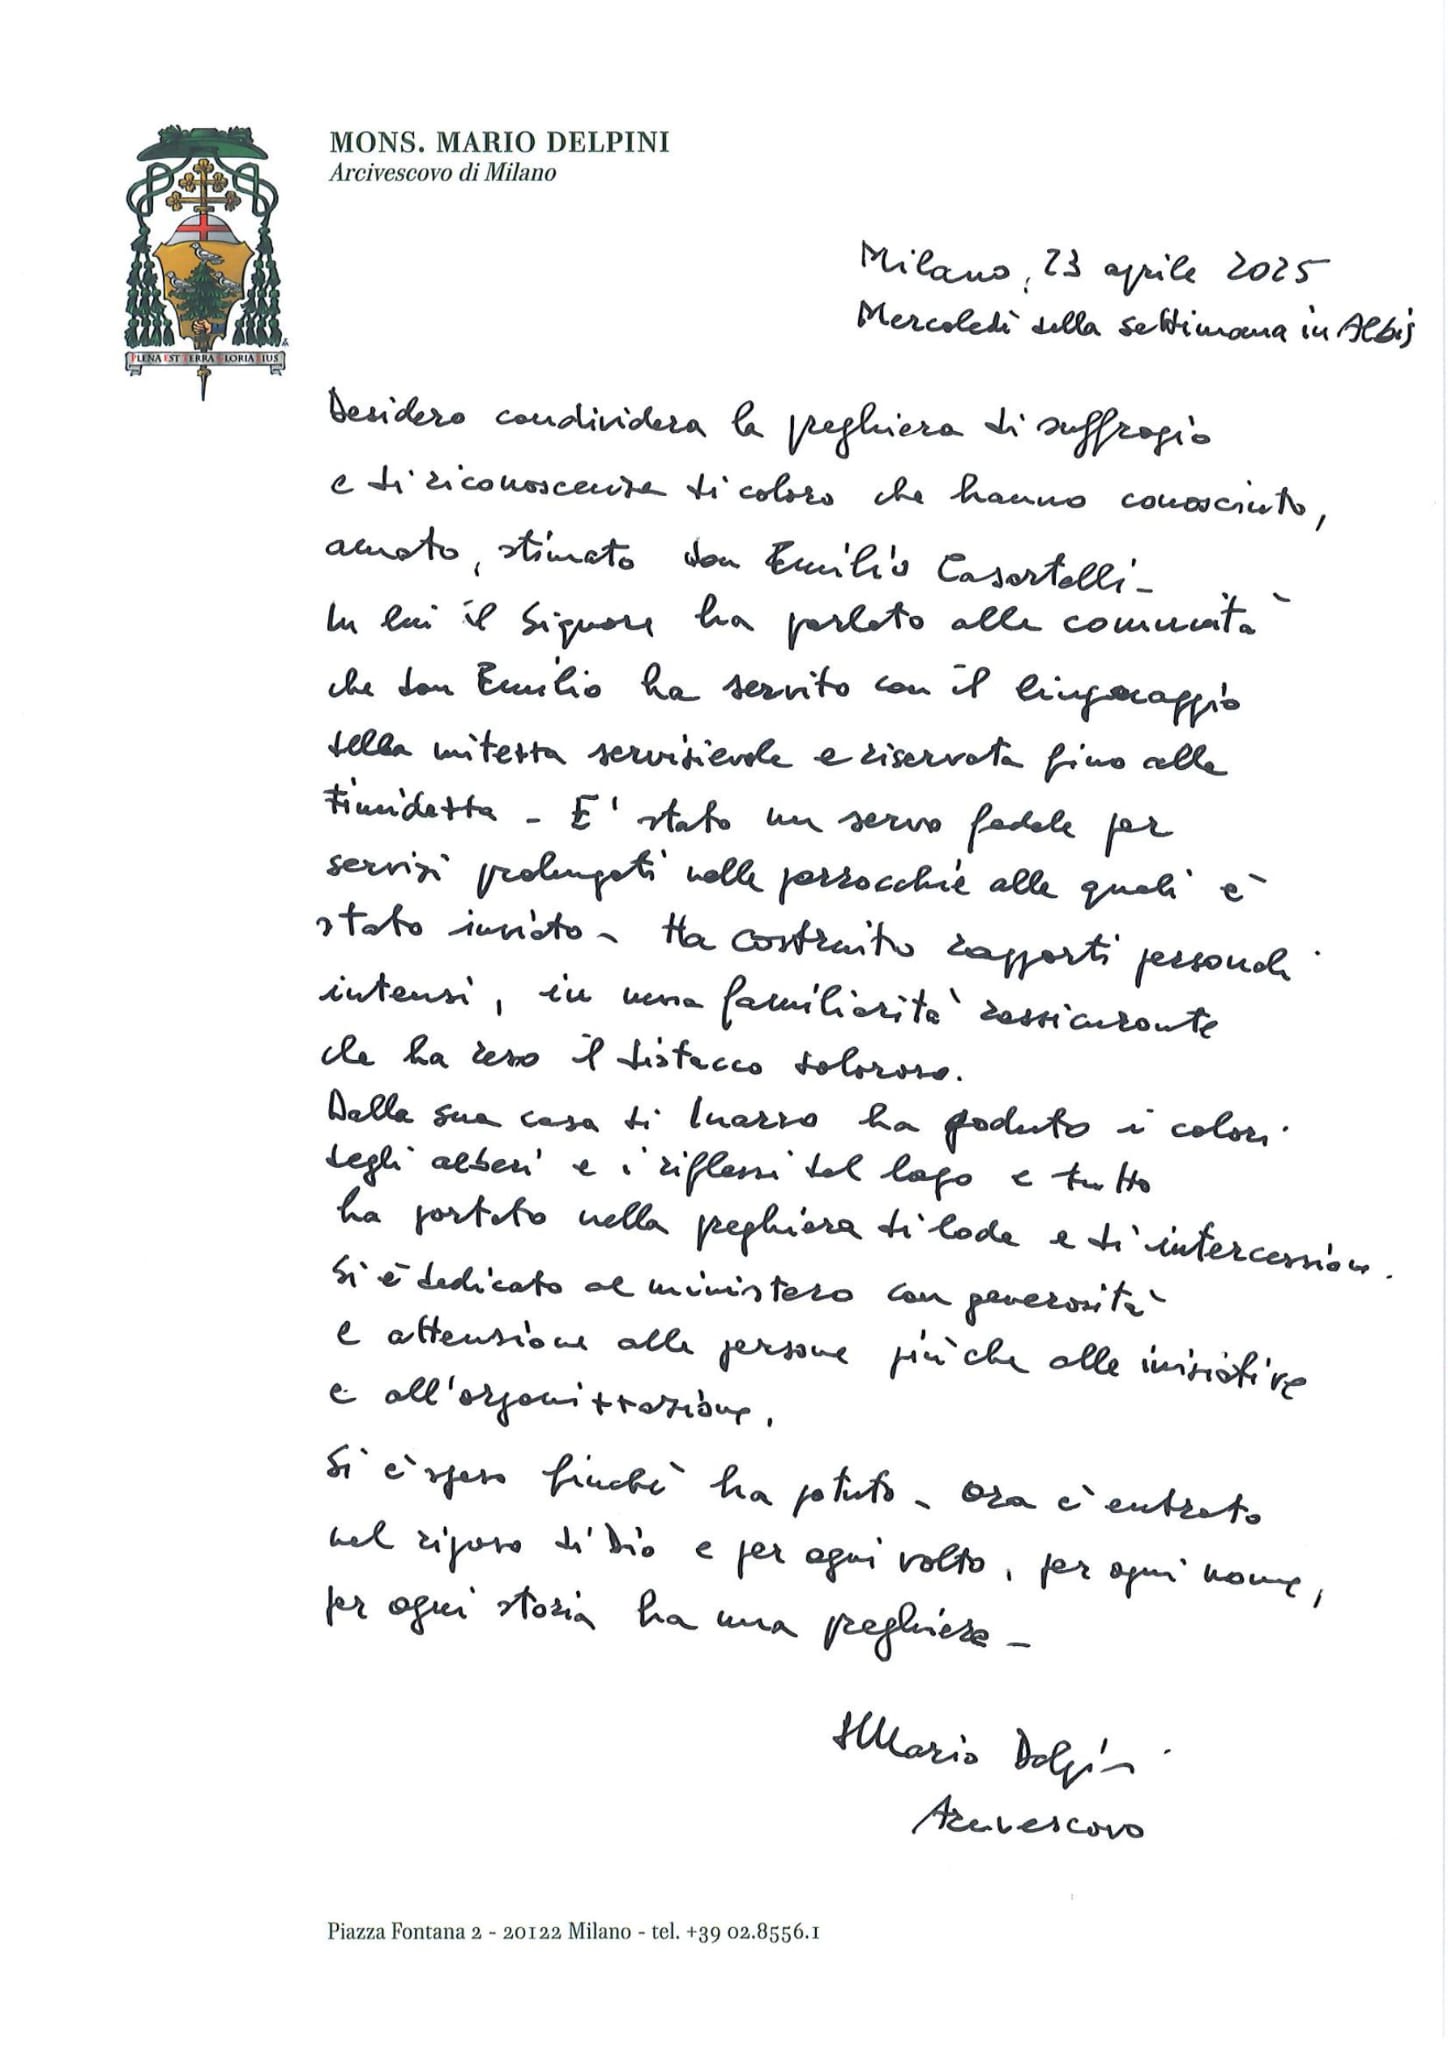 MONS. MARIO DELPINI
Arcivescovo di Milano
PLENA EST TERRA GLORIA EIUS
Milano, 23 aprile 2025
Mercoledì della settimana in Albis
Desidero condividere la preghiera di suffragio
e di riconoscenza di coloro che hanno conosciuto,
amato, stimato don Emilio Casartelli -
In lui il Signore ha parlato alle comunità
che don Emilio ha servito con il linguaggio
della mitezza servizievole e riservata fino alla
timidezza - E' stato un servo fedele per
servizi prolungati nelle parrocchie alle quali è
stato inviato - Ha costruito rapporti personali
intensi, in una familiarità rassicurante
che ha reso il distacco doloroso.
Dalla sua casa di Inarzo ha goduto i colori
degli alberi e i riflessi del lago e tutto
ha portato nella preghiera di lode e di intercessione.
Si è dedicato al ministero con generosità
e attenzione alle persone più che alle iniziative
e all'organizzazione.
Si è speso finché ha potuto - Ora è entrato
nel riposo di Dio e per ogni volto, per ogni nome,
per ogni storia ha una preghiera -
+ Mario Delpini
Arcivescovo
Piazza Fontana 2 - 20122 Milano - tel. +39 02.8556.1